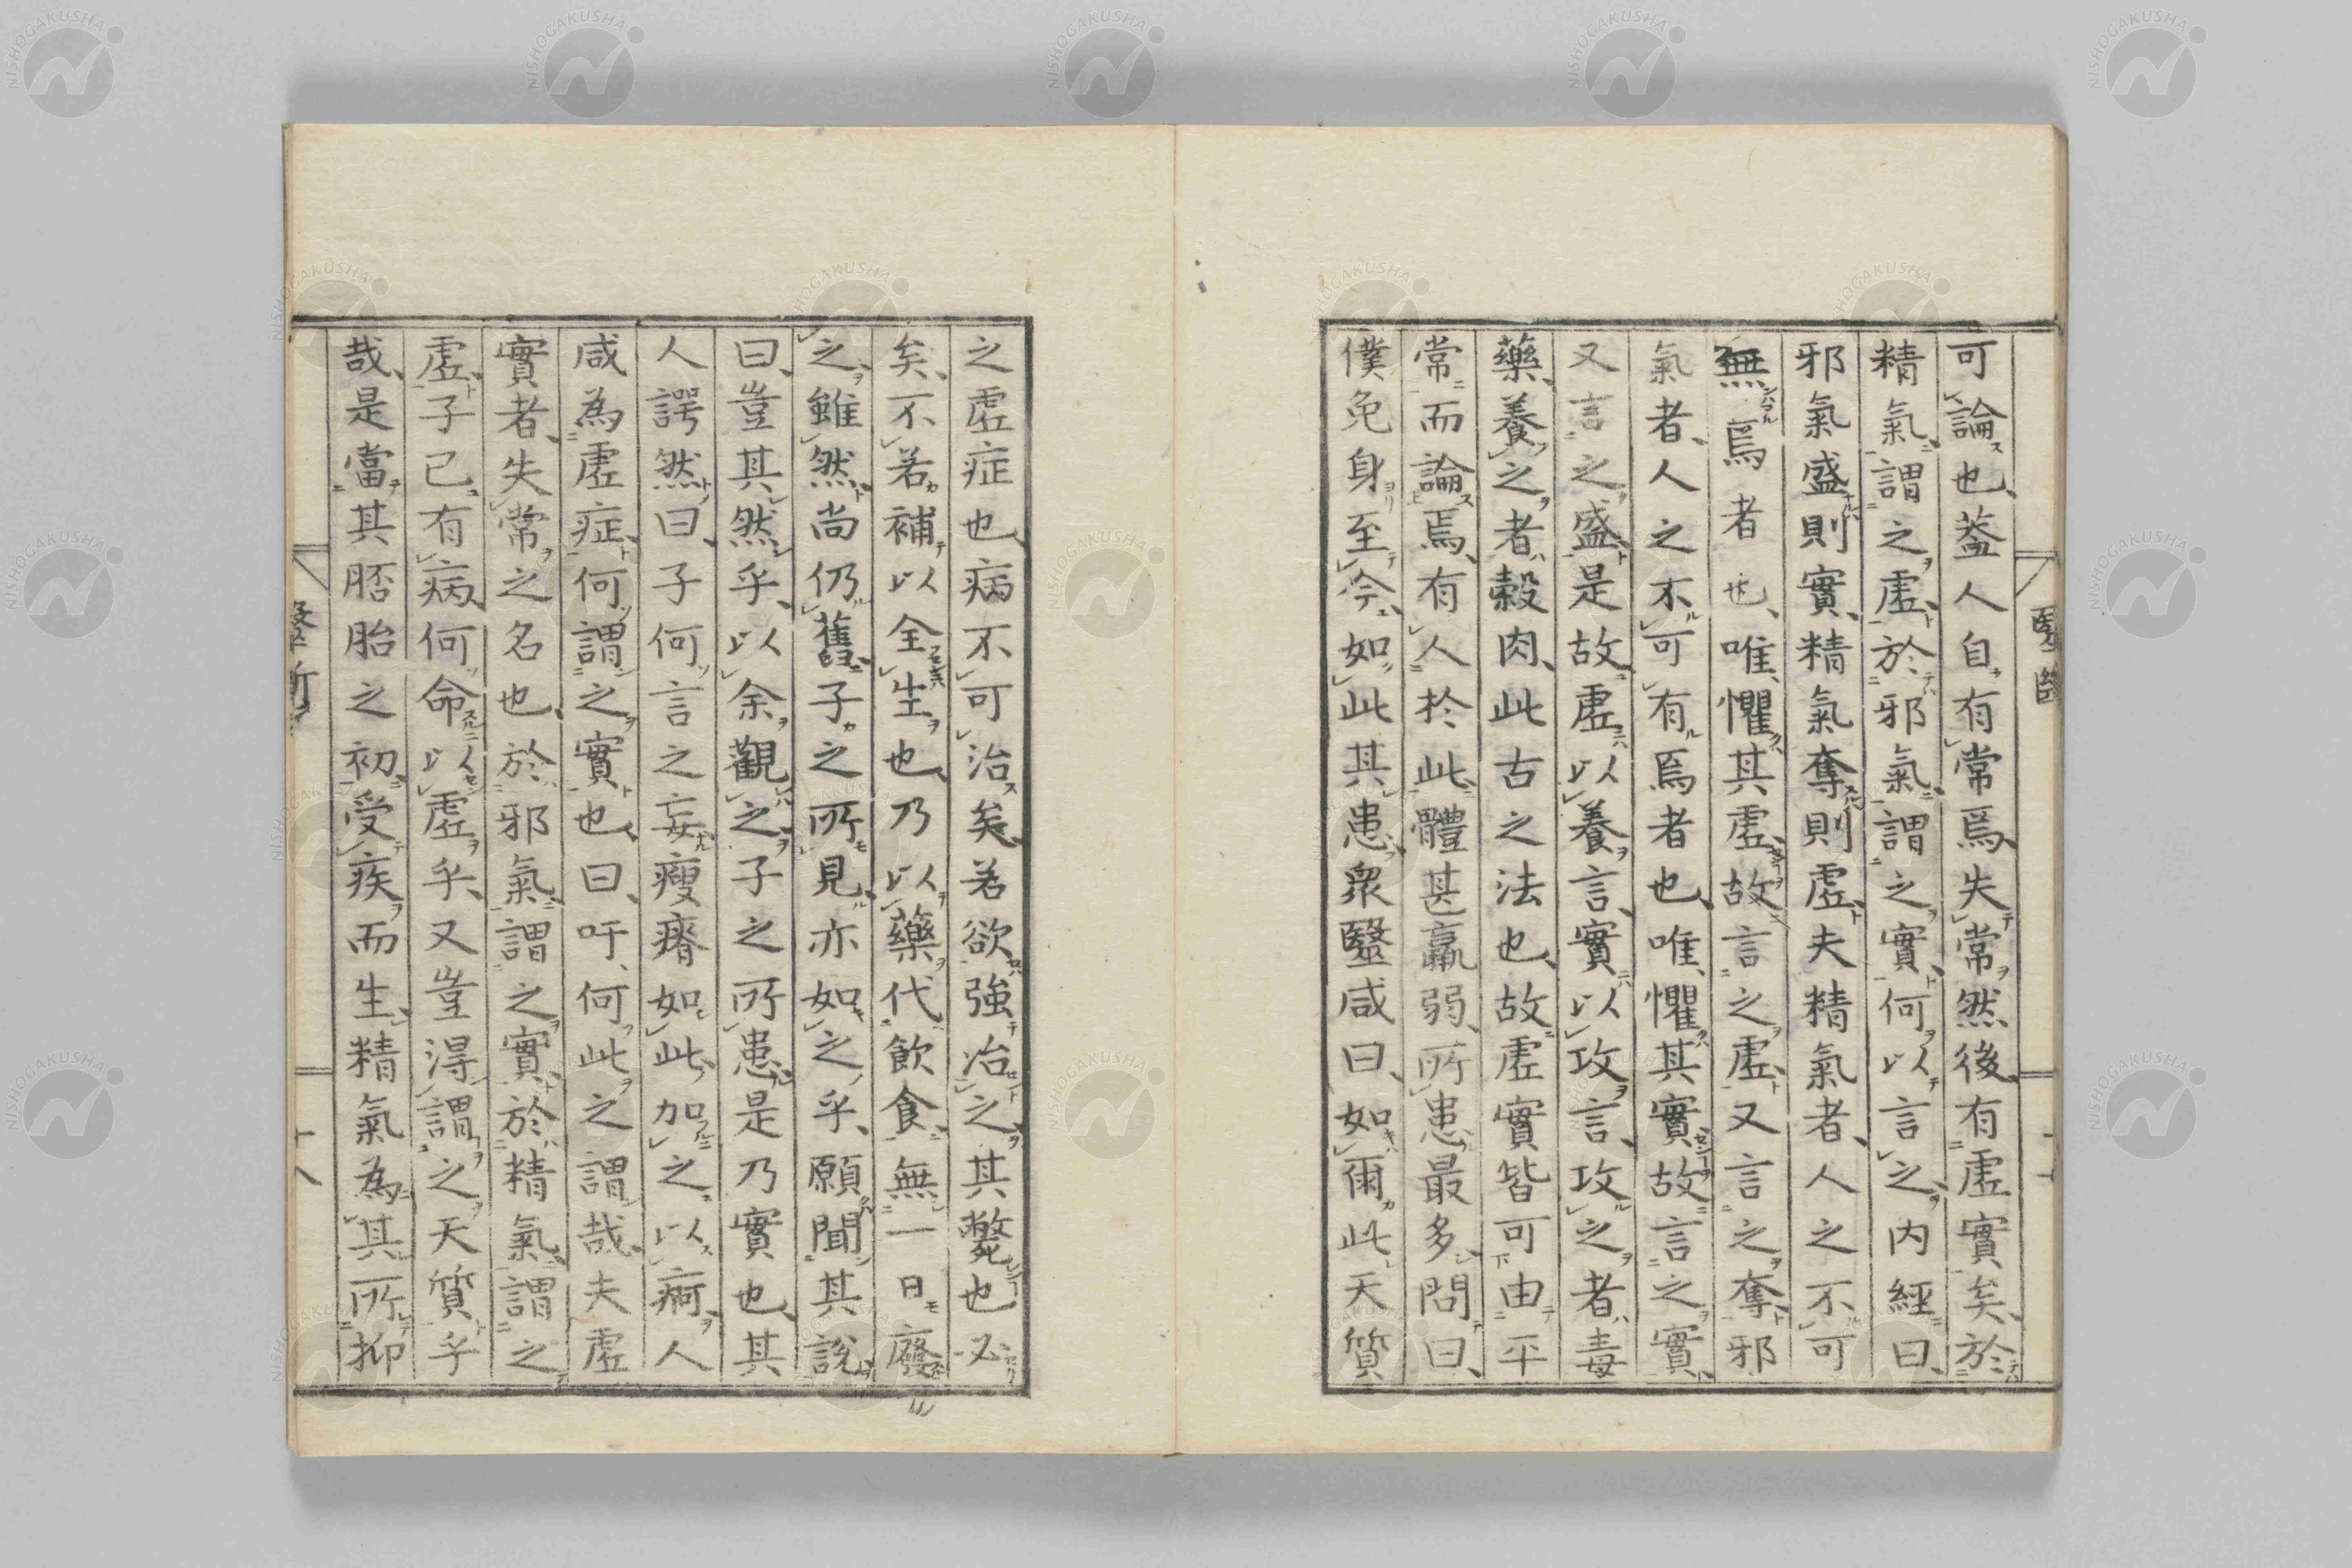 可論也蓋人自有常焉失常然後有虛實矣於
精氣謂之虛於邪氣謂之實何以言之内經曰
邪氣盛則實精氣奪則虛夫精氣者人之不可
無焉者也唯懼其虛故言之虛又言之奪邪
氣者人之不可有焉者也唯懼其實故言之實
又言之盛是故虛以養言實以攻言攻之者毒
藥養之者穀肉此古之法也故虛實皆可由平
常而論焉有人於此體甚羸弱所患最多問曰
僕免身至今如此其患衆醫咸曰如爾此天質
之虛症也病不可治矣若欲強治之其斃也必
矣不若補以全生也乃以藥代飲食無一日廢
之雖然尚仍舊子之所見亦如之乎願聞其說
曰豈其然乎以余觀之子之所患是乃實也其
人諤然曰子何言之妄瘦瘠如此加之以痾人
咸為虛症何謂之實也曰吁何此之謂哉夫虛
實者失常之名也於邪氣謂之實於精氣謂之
虛子已有病何命以虛乎又豈得謂之天質乎
哉是當其胚胎之初受疾而生精氣為其所抑
NISHOGAKUSHA